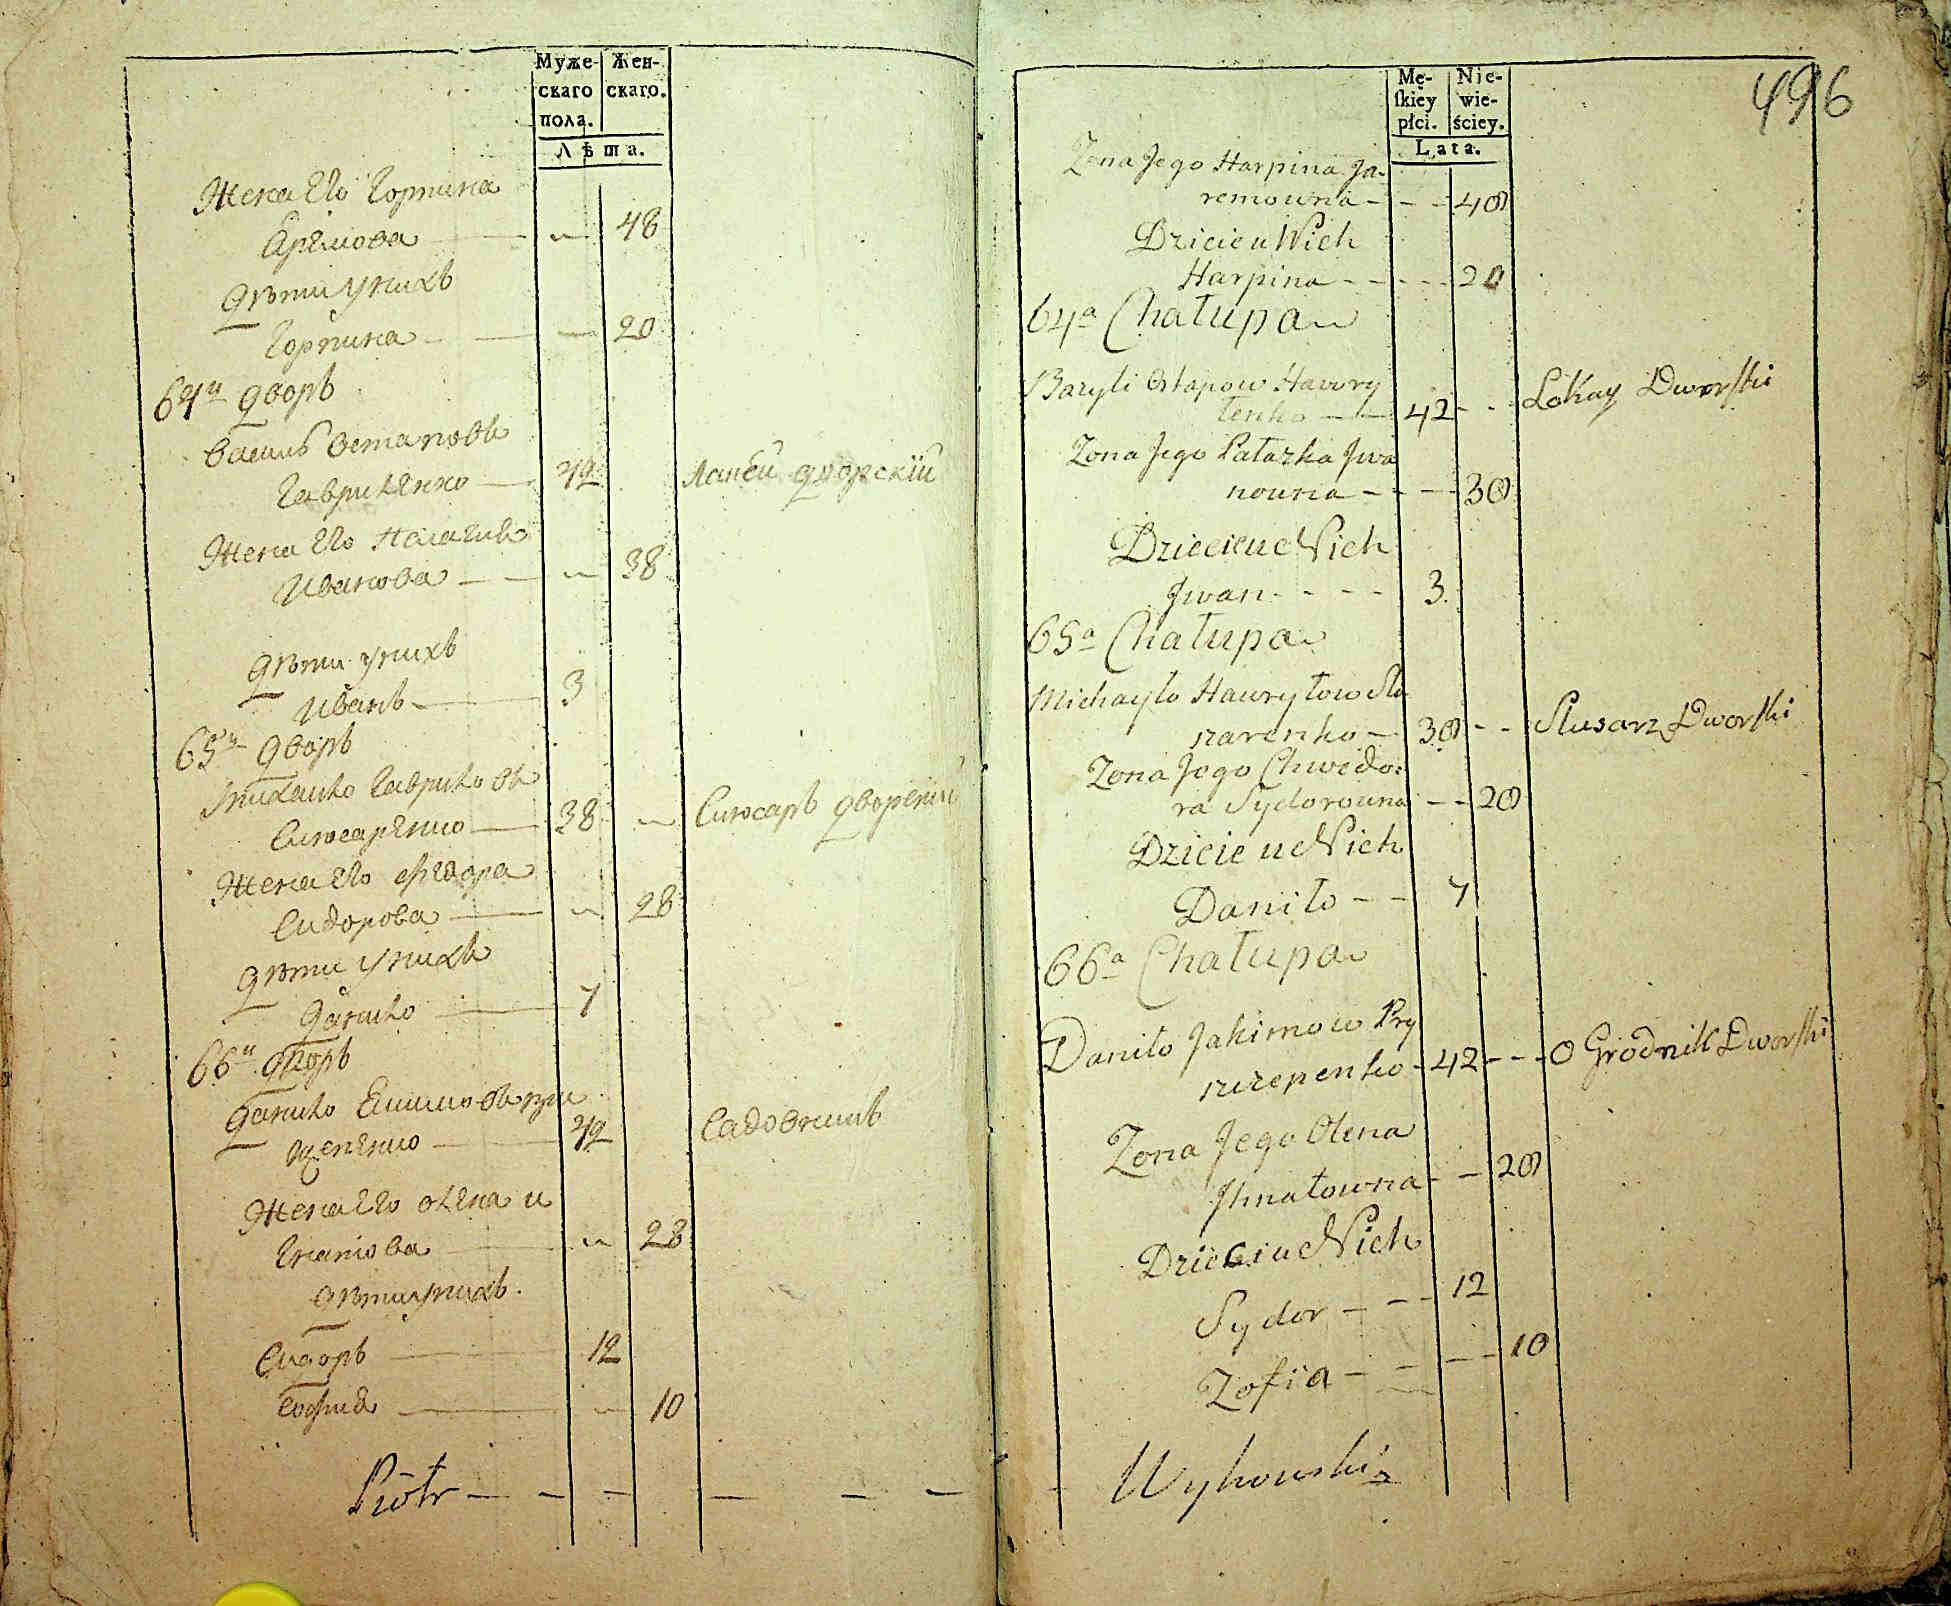 Муже-
скаго
пола.
Жен-
скаго.
Лѣта.
Жена Его Горпина
Яремова — „ 48
Дѣти у нихъ
Горпина — 20
64й дворъ
Василь Остаповъ
Гавриленко — 42 Лакей дворскій
Жена Его Палажка
Иванова — „ 38
Дѣти у нихъ
Иванъ — 3
65й дворъ
Михайло Гавриловъ
Слюсаренко — 38 „ Слюсаръ дворскій
Жена Его Федора
Сидорова — „ 28
Дѣти у нихъ
Данило — 7
66й дворъ
Данило Екимовъ При
щепенко — 42 Садовникъ
Жена Его Олена И
гнатова — „ 28
Дѣти у нихъ.
Сидоръ — 12
София — „ 10
Piotr — — — — — —
496
Mę-
skiey
płci.
Nie-
wie-
ściey.
Lata.
Zona Jego Harpina Ja-
remowna - - - 48
Dzicie u Nich
Harpina - - - - 20
64a Chałupa
Bazyli Ostapow Hawry
łenko - - 42 - - Lokay Dworski
Zona Jego Pałazka Jwa
nowna - - - - 38
Dziecie u Nich
Jwan - - - - 3
65a Chałupa
Michayło Hawryłow Slu
szarenko - 38 - - Slusarz Dworski
Zona Jego Chwedo:
ra Sydorowna - - 28
Dzicie u Nich
Daniło - - 7
66a Chałupa
Daniło Jakimow Pry
szczepenko - 42 - - - OGrodnik Dworski
Zona Jego Olena
Jhnatowna - - 28
Dzieci u Nich
Sydor - - - 12
Zofia - - - - 10
Wyhowski